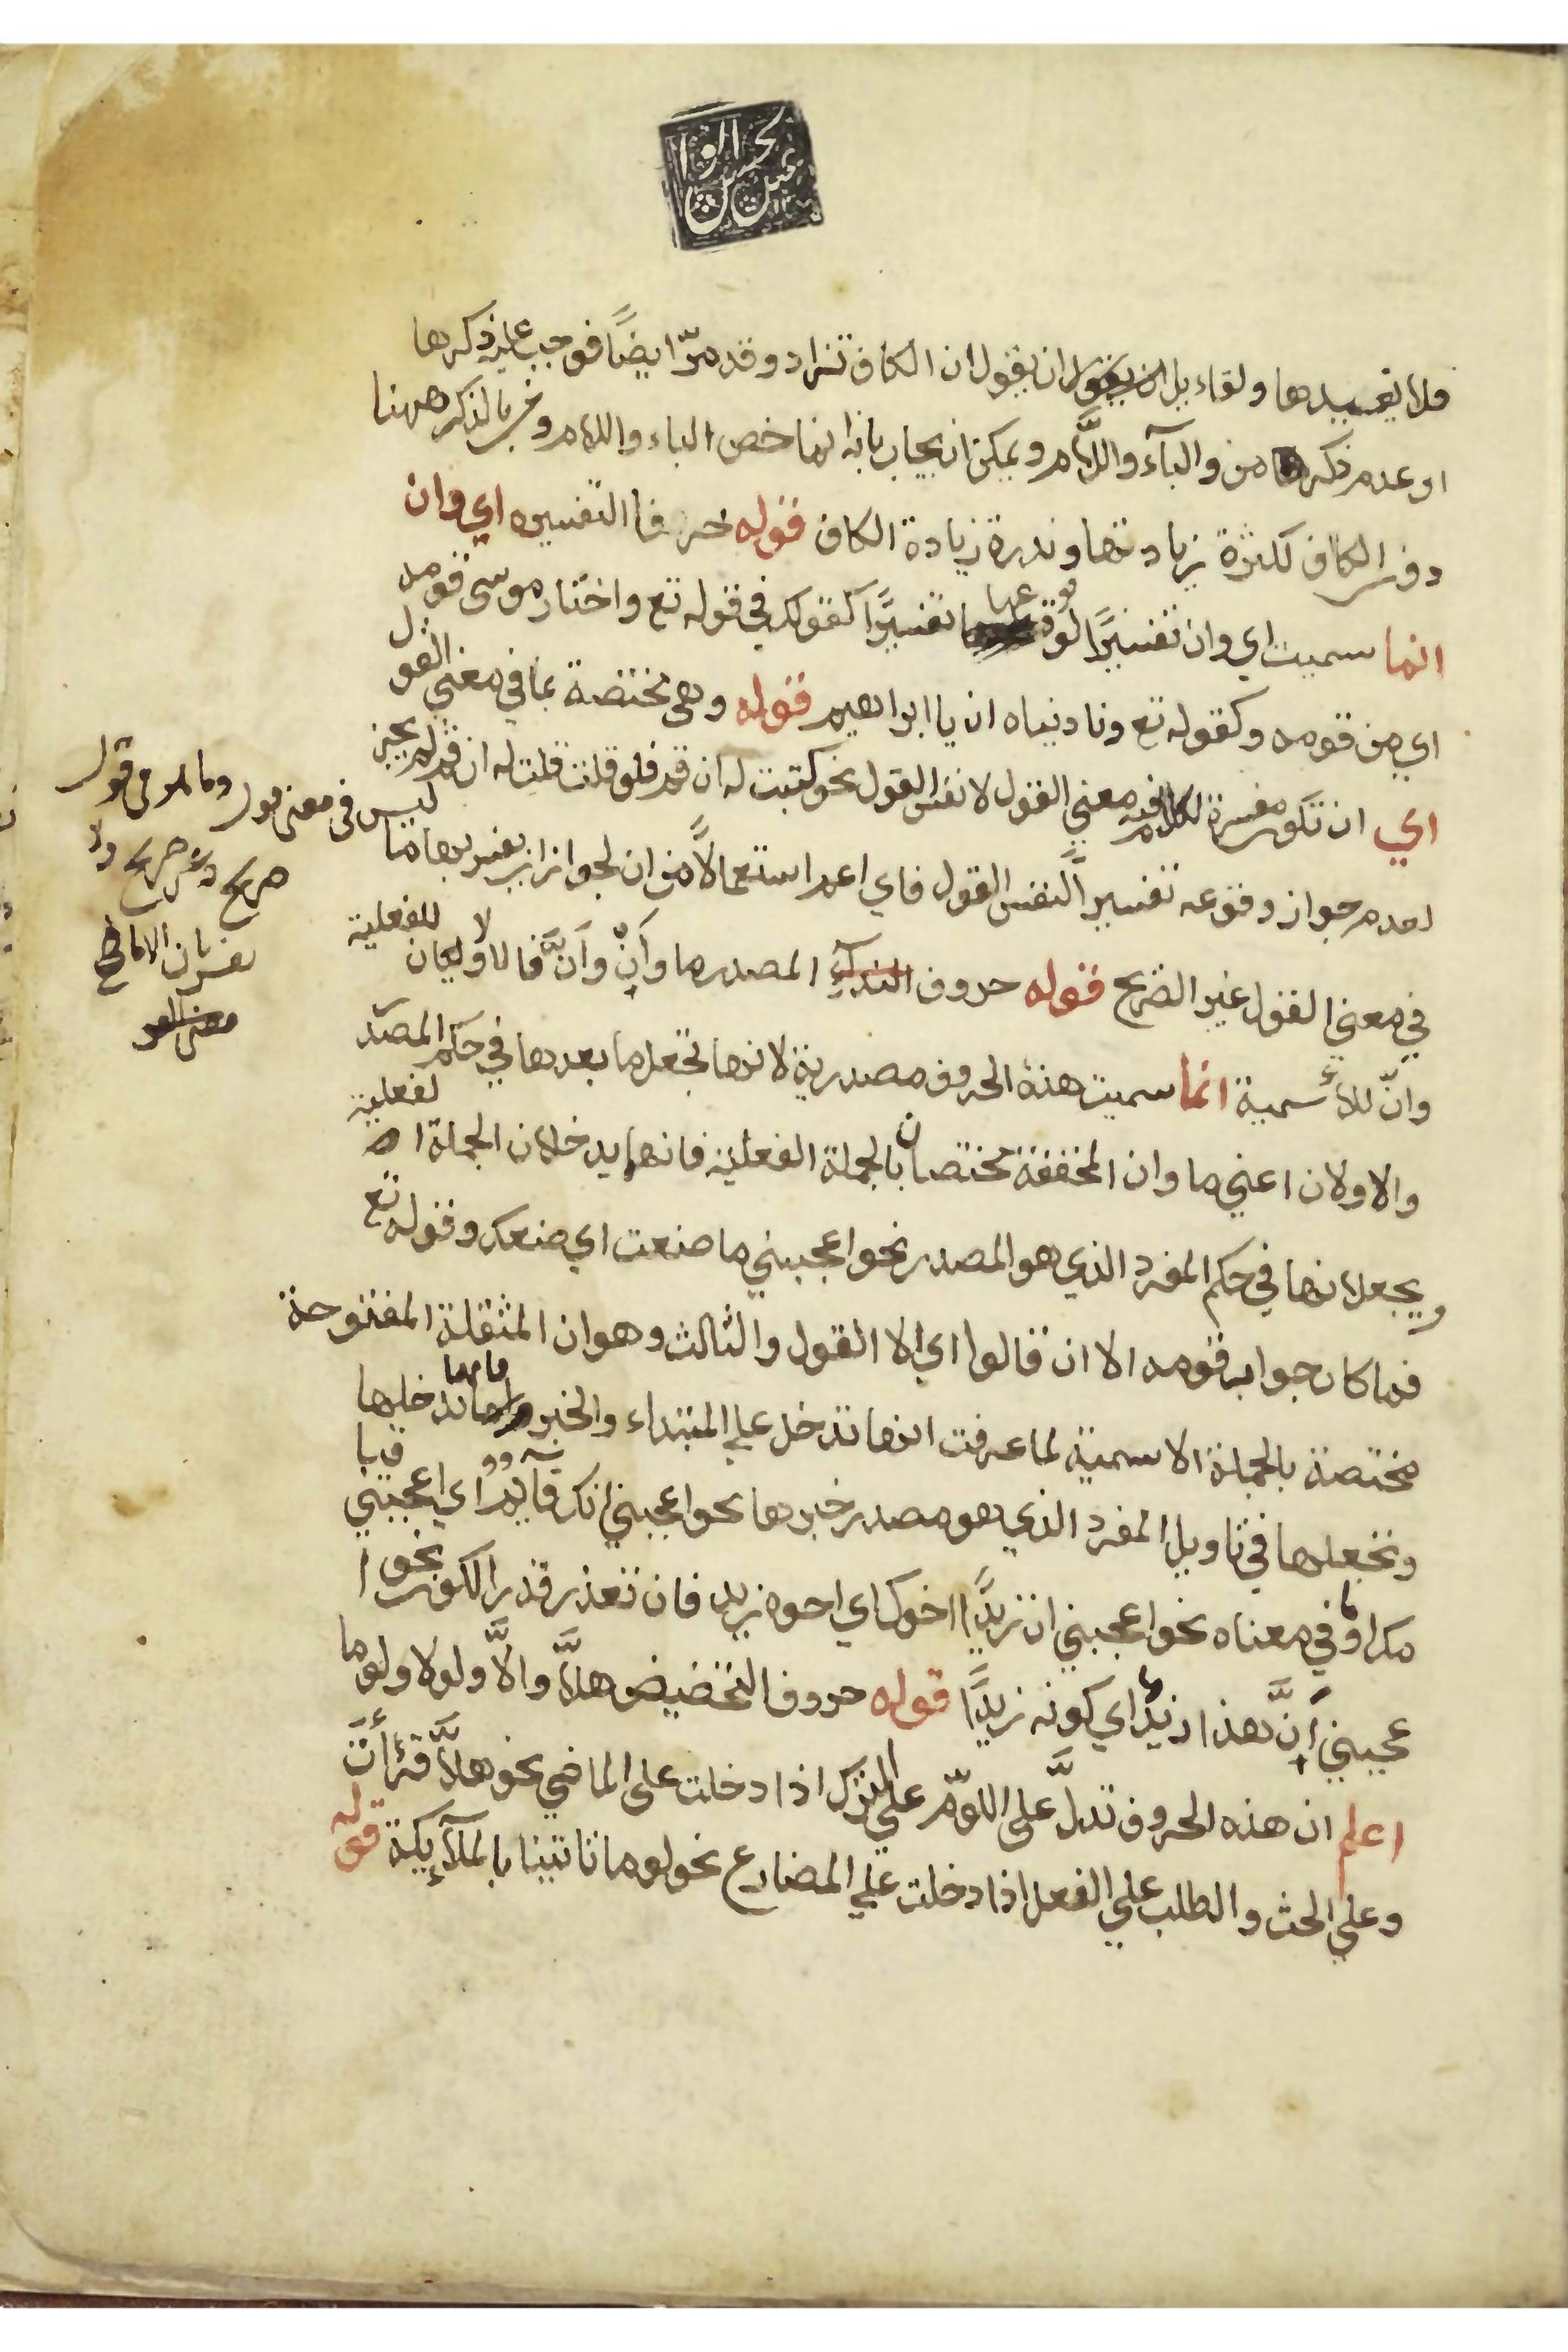 فلا يعيدها ولقاءيل ان يقول ان الكاف تزاد وقد مرّ ايضًا فوجب عليه ذكرها
او عدم ذكر من والبآء واللَّام ويمكن ان يجاب بانه انما خص الباء واللام ومن بالذكر ههنا
دون الكاف لكثرة زيادتها وندرة زيادة الكاف قوله حرفا التفسير اي وان
انما سميت اي وان تفسيرًا لوقوعهما تفسيرًا كقولك في قوله تع واختار موسى قومه
اي من قومه وكقوله تع وناديناه ان يا ابراهيم قوله وهي مختصة بما في معني القول
اي ان تكون مفسرة لكلام فيه معني القول لا نفس القول نحو كتبت له ان قم فلو قلت قلت له ان قم لم يجز
لعدم جواز وقوعه تفسيرًا لنفس القول فاي اعم استعمالًا من ان لجواز ان يفسر بها ما
ليس في معنى قول وما هو قول
صريح وغير صريح ولا
يفسر بان الا ما في
معنى القول
في معني القول غير الصريح قوله حروف المصدر ما وأن وأنَّ فالاولان للفعلية
وانّ للاسمية انما سميت هذه الحروف مصدرية لانها تجعل ما بعدها في حكم المصدر
والاولان اعني ما وان المخففة مختصان بالجملة الفعلية فانهما يدخلان الجملة الفعلية
ويجعلانها في حكم المفرد الذي هو المصدر نحو اعجبني ما صنعت اي صنعك وقوله تع
فما كان جواب قومه الا ان قالوا اي الا القول والثالث وهو ان المثقلة المفتوحة
مختصة بالجملة الاسمية لما عرفت انها تدخل علي المبتداء والخبر فانها تدخلها
وتجعلها في تاويل المفرد الذي هو مصدر خبرها نحو اعجبني انك قايم اي اعجبني قيا
مك او ما في معناه نحو اعجبني ان زيدًا اخوك اي اخوة زيد فان تعذر قدر الكون نحو ا
عجبني أنَّ هذا زيد اي كونه زيدًا قوله حروف التخضيض هلَّا والَّا ولولا ولوما
اعلم ان هذه الحروف تدلّ على اللوّم على الترك اذا دخلت على الماضي نحو هلَّا قرأت
وعلي الحث والطلب علي الفعل اذا دخلت علي المضارع نحو لوما تاتينا بالملآيكة قوله